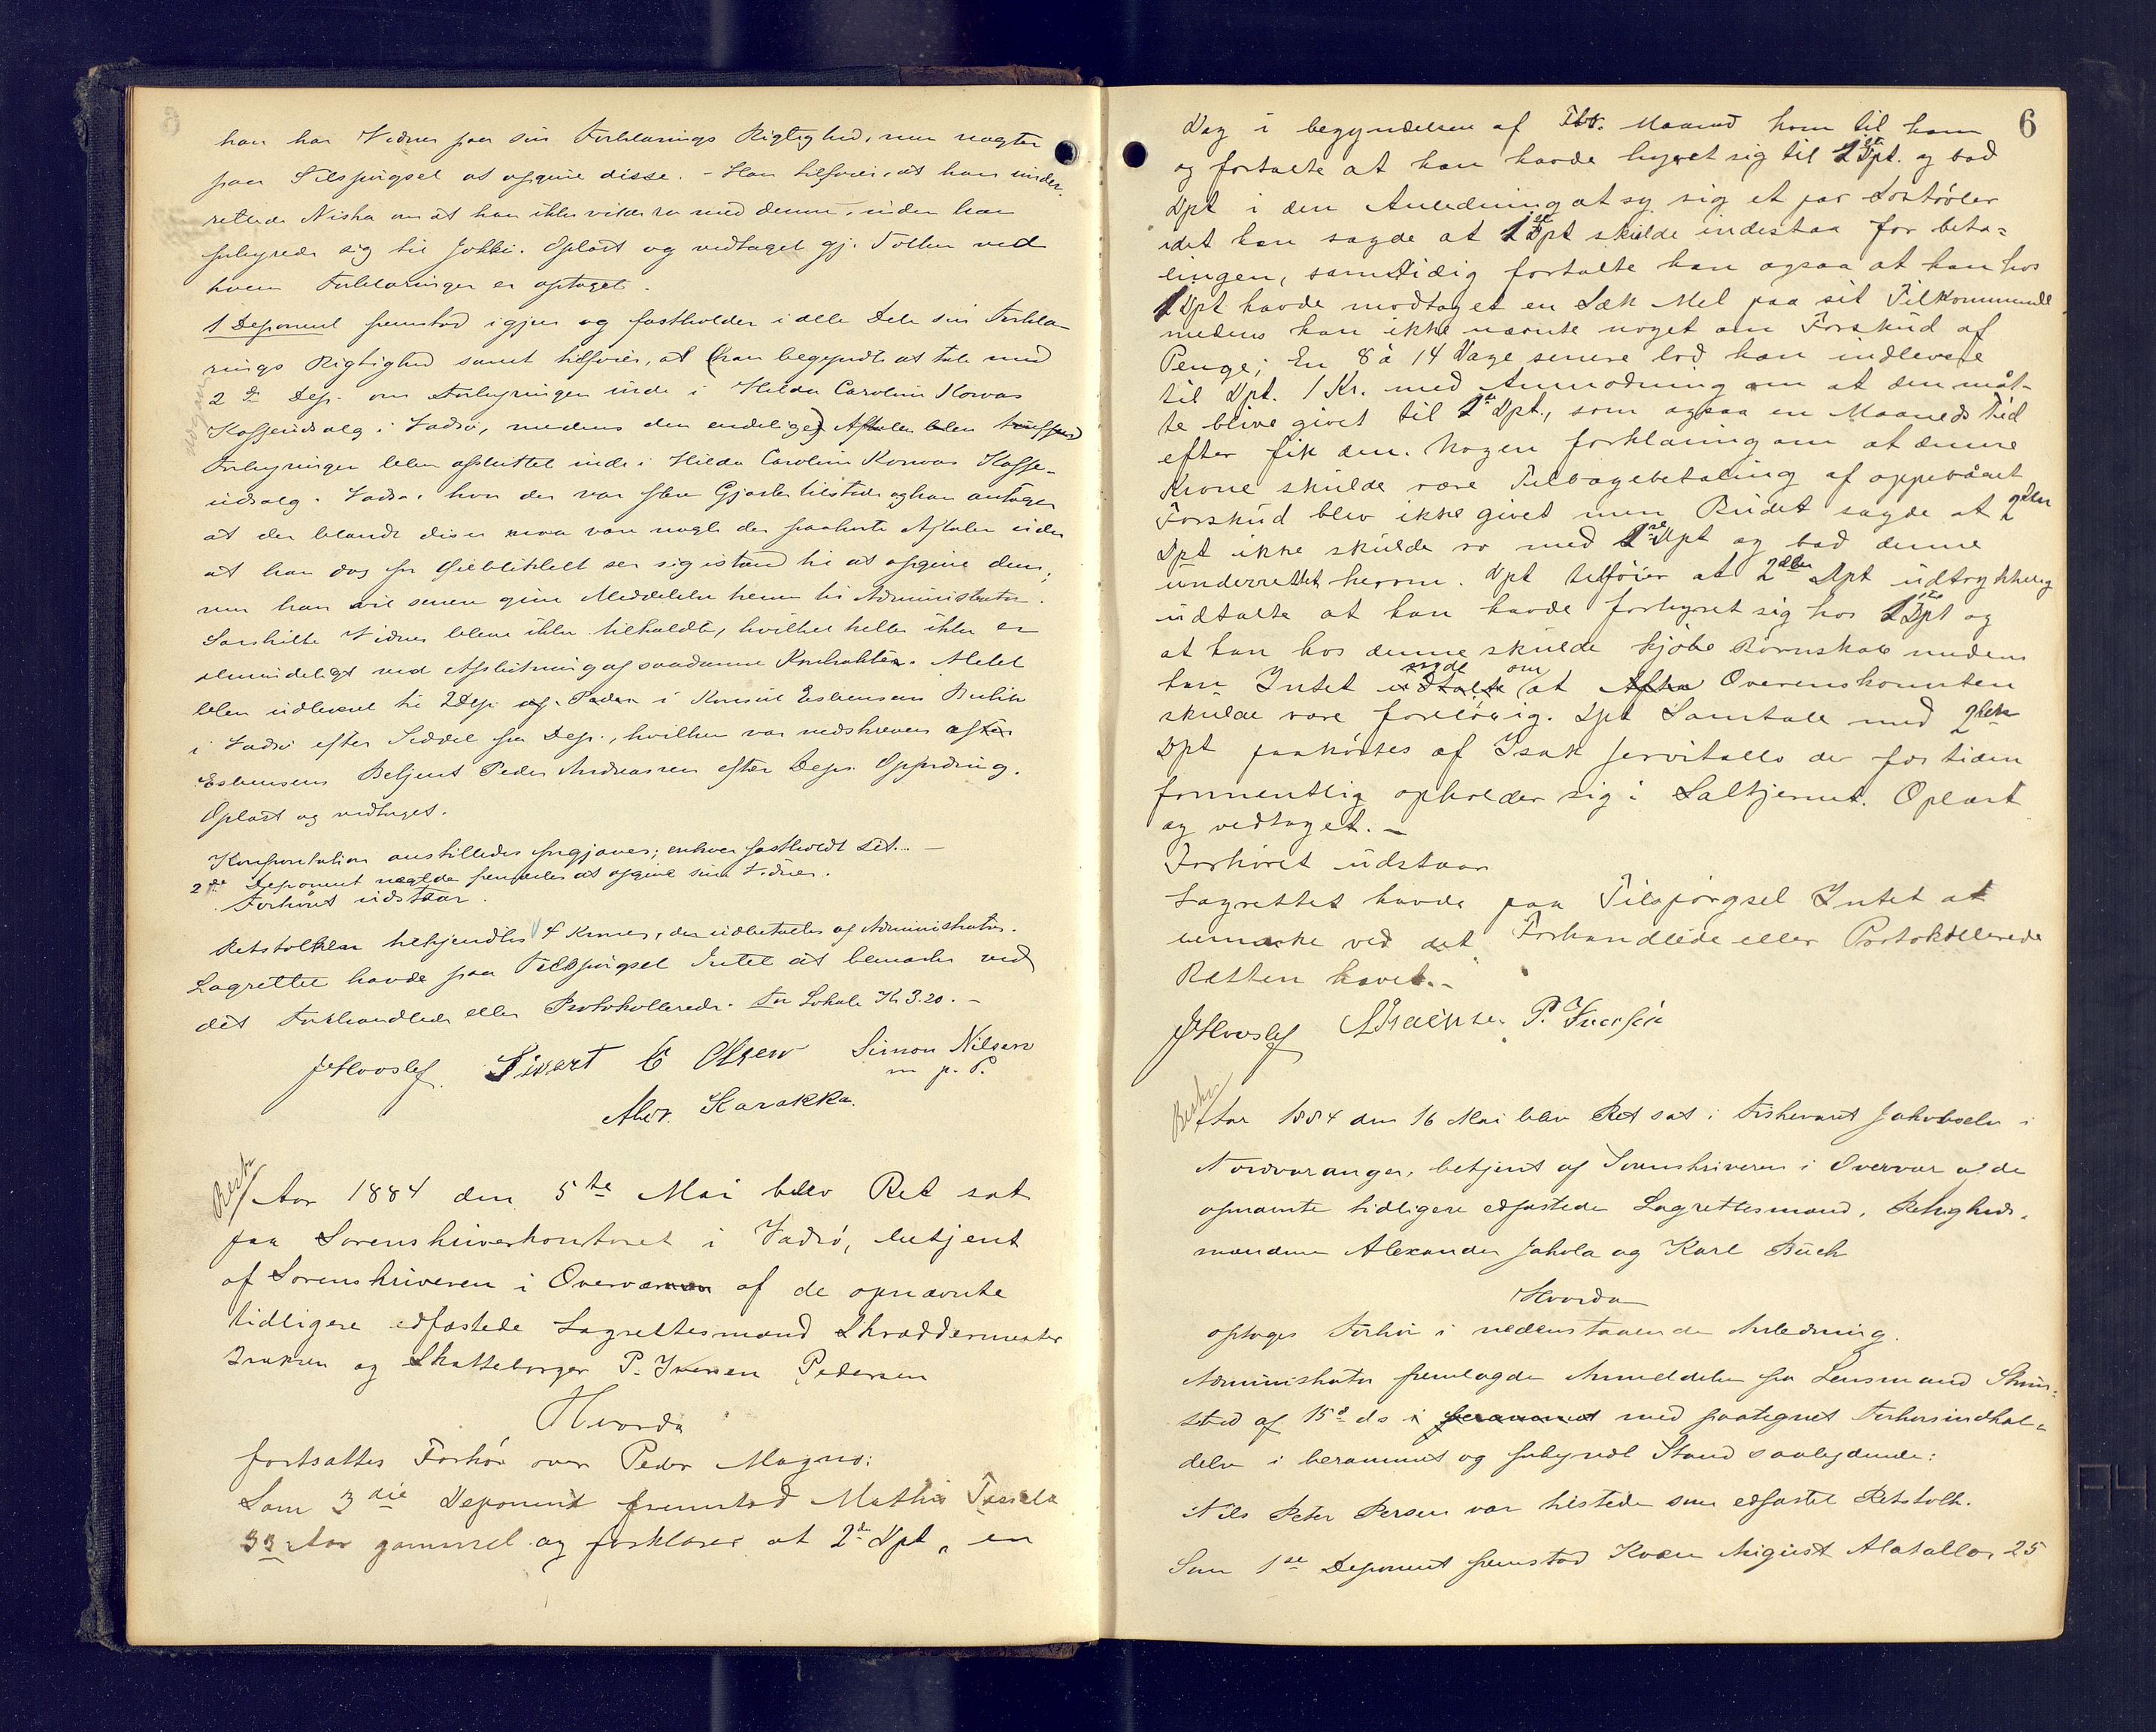 han har Vidner paa sin Forklarings Rigtighed, men nægter
paa Tilspørgsel at opgive disse. - Han tilføier, at han under-
rettede Niska om at han ikke vilde ro med denne, inden han
forhyrede sig til Jokki. Oplæst og vedtaget gj. Tolken ved
hvem Forklaringen er optaget.
1 Deponent fremstod igjen og fastholder i alle Dele sin Forkla-
rings Rigtighed samt tilføier, at (han begyndte at tale med
2 de Dep. om Forhyringen inde i Hilda Caroline Korvas
Kaffeudsalg i Vadsø, medens den endelige) Aftalen blev
Forhyringen blev afsluttet inde i Hilda Caroline Korvas Kaffe-
udsalg i Vadsø, hvor der var flere Gjæster tilstede og han antager
at der blandt disse maa være nogle der paahørte Aftalen uden
at han dog for Øieblikket ser sig istand til at opgive dem;
men han vil senere give Meddelelse herom til Administrator.
Særskilte Vidner bleve ikke tilkaldte, hvilket heller ikke er
almindeligt ved Afslutning af saadanne Kontrakter. Melet
blev udleveret til 2 Dep. af Peder i Konsul Esbensens Butik
i Vadsø efter Seddel fra Dep., hvilken var nedskreven efter
Esbensens Betjent Peder Andreassen efter Deps Opfordring.
Oplæst og vedtaget.
Konfrontation anstilledes forgjæves; enhver fastholdt Sit. -
2 de Deponent nægtede fremdeles at opgive sine Vidner.
Forhøret udstaar.
Retstolken tilkjendtes 4 Kroner, der udbetaltes af Administrator.
Lagrettet havde paa Tilspørgsel Intet at bemærke ved
det Forhandlede eller Protokollerede. For Lokale Kr 3.20. -
JHovslef. Sivert C Olsen Simon Nilsen
m. p. P.
Alex. Karakka.
Beskr
Aar 1884 den 5te Mai blev Ret sat
paa Sorenskriverkontoret i Vadsø, betjent
af Sorenskriveren i Overvær af de opnævnte
tidligere edfæstede Lagrettesmænd Skræddermester
Isaksen og Skatteborger P. Iversen Pedersen
Hvorda
fortsattes Forhør over Peder Magnus:
Som 3die Deponent fremstod Mathis
33 Aar gammel og forklarer at 2de Dpt, en
6
Dag i begyndelsen af Febr. Maaned kom til ham
og fortalte at han havde hyret sig til 1ste Dpt. og bad
Dpt i den Anledning at sy sig et par Søstøvler
idet han sagde at 1ste Dpt skulde indestaa for beta-
lingen, samtidig fortalte han ogsaa at han hos
1 Dpt havde modtaget en Sæk Mel paa sit Tilkommende
medens han ikke nævnte noget om Forskud af
Penge; En 8 à 14 Dage senere lod han indlevere
til Dpt. 1 Kr. med Anmodning om at den måt-
te blive givet til 1ste Dpt., som ogsaa en Maaneds Tid
efter fik den. Nogen forklaring om at denne
Krone skulde være Tilbagebetaling af oppebåret
Forskud blev ikke givet men Budet sagde at 2den
Dpt ikke skulde ro med 1ste Dpt og bad denne
underrettet herom. Dpt tilføier at 2den Dpt udtrykkelig
udtalte at han havde forhyret sig hos 1ste Dpt og
at han hos denne skulde kjøbe Børnskab medens
han Intet udtalte sagde om at Aftal Overenskomsten
skulde være foreløbig. Dpt Samtale med 2den
Dpt paahørtes af Isak Jervitallo der for tiden
formentlig opholder sig i Saltjernet. Oplæst
og vedtaget. -
Forhøret udstaar
Lagrettet havde paa Tilspørgsel Intet at
bemærke ved det Forhandlede eller Protokollerede
Retten hævet. -
JHovslef AIsaksen P. Iversen
Beskr
Aar 1884 den 16 Mai blev Ret sat i Fiskeværet Jakobselv i
Nordvaranger, betjent af Sorenskriveren i Overvær af de
opnævnte tidligere edfæstede Lagrettesmænd, Leiligheds-
mændene Alexander Jakola og Karl Buck
Hvorda
optoges Forhør i nedenstaaende Anledning.
Administrator fremlagde Anmeldelse fra Lensmand
af 15de ds i med paategnet Forhørsindkal-
delse i berammet og forkyndt Stand saalydende:
Nils Peter Persen var tilstede som edfæstet Retstolk.
Som 1ste Deponent fremstod Kvæn August Alatallo, 25